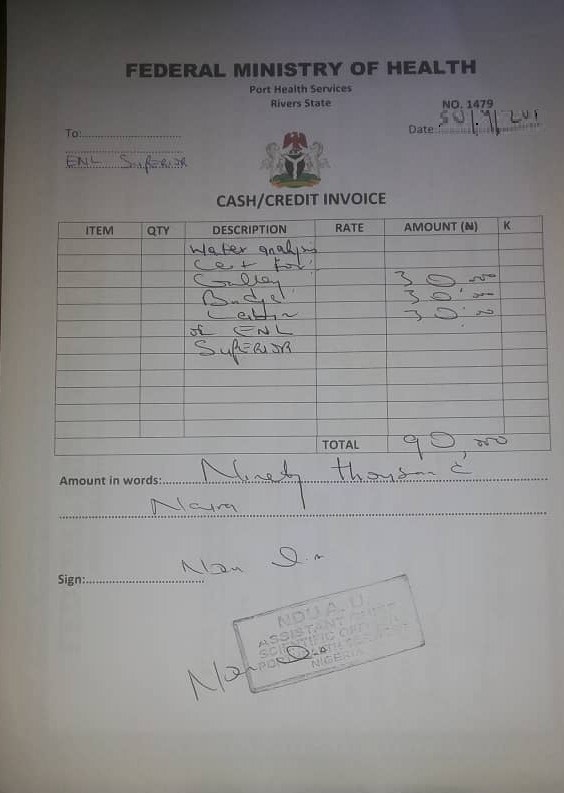 FEDERAL MINISTRY OF HEALTH
Port Health Services
Rivers State
NO. 1479
To:
Date:
ENL SUPERIOR
CASH/CREDIT INVOICE
ITEM QTY DESCRIPTION RATE AMOUNT (₦) K
Water analysis
Cert for
30,000
30,000
30,000
of ENL
SUPERIOR
TOTAL 90,000
Amount in words: Ninety thousand
Naira
Sign:
NDU A. U.
ASSISTANT
SCIENTIFIC
NIGERIA